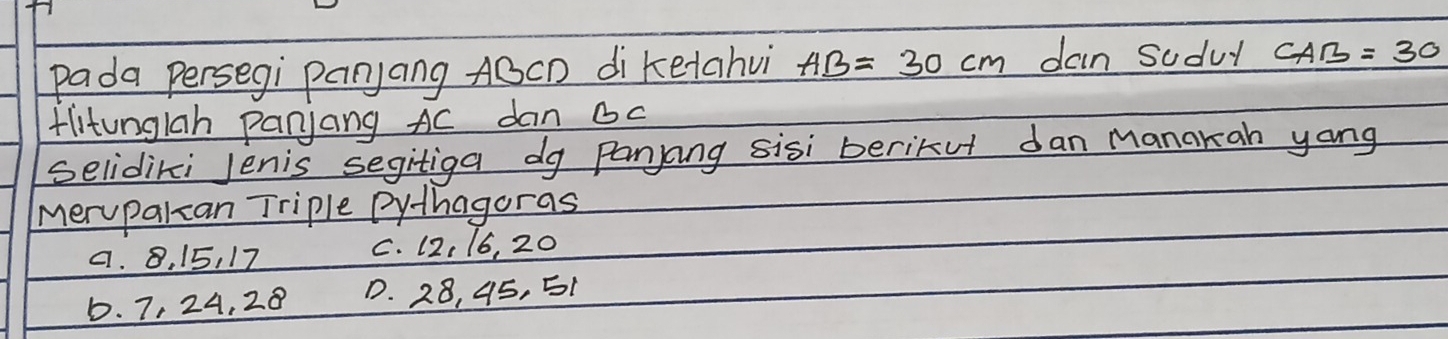 pada persegi panjang ABCD diketahui AB = 30 cm dan sudut CAB = 30
Hitunglah panjang AC dan BC
selidiki jenis segitiga dg panjang sisi berikut dan manakah yang
Merupakan Triple Pythagoras
a. 8,15,17 c. 12, 16, 20
b. 7, 24, 28 D. 28, 45, 51